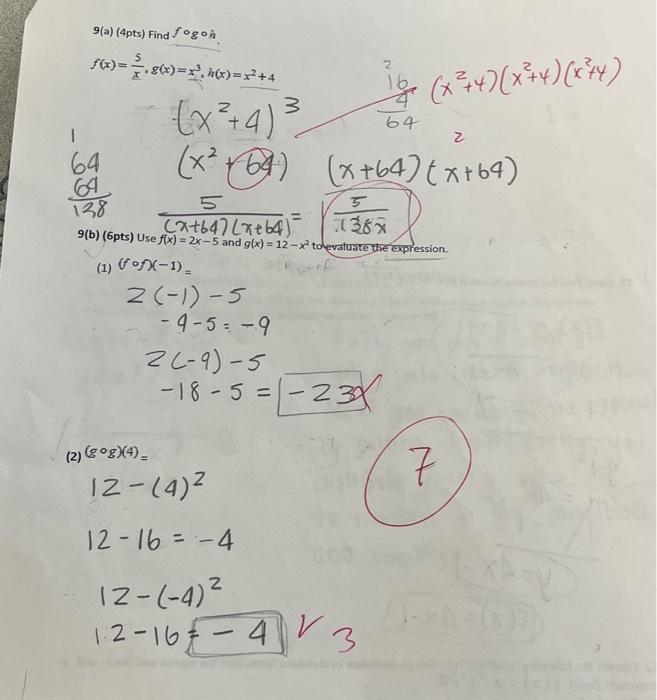 9(a) (4pts) Find f∘g∘h.
f(x) = 5/x, g(x) = x³, h(x) = x² + 4
2
16
4
64
(x²+4)(x²+4)(x²+4)
(x²+4)³
2
1
64
64
138
(x² + 64) (x+64)(x+64)
5/((x+64)(x+64) = 5/138x
9(b) (6pts) Use f(x) = 2x – 5 and g(x) = 12 – x² to evaluate the expression.
(1) (f∘f)(–1) =
2(-1) - 5
-9 - 5 = -9
2(-9) - 5
-18 - 5 = -23 x
7
(2) (g∘g)(4) =
12 - (4)²
12 - 16 = -4
12 - (-4)²
12 - 16 = - 4 ✓ 3